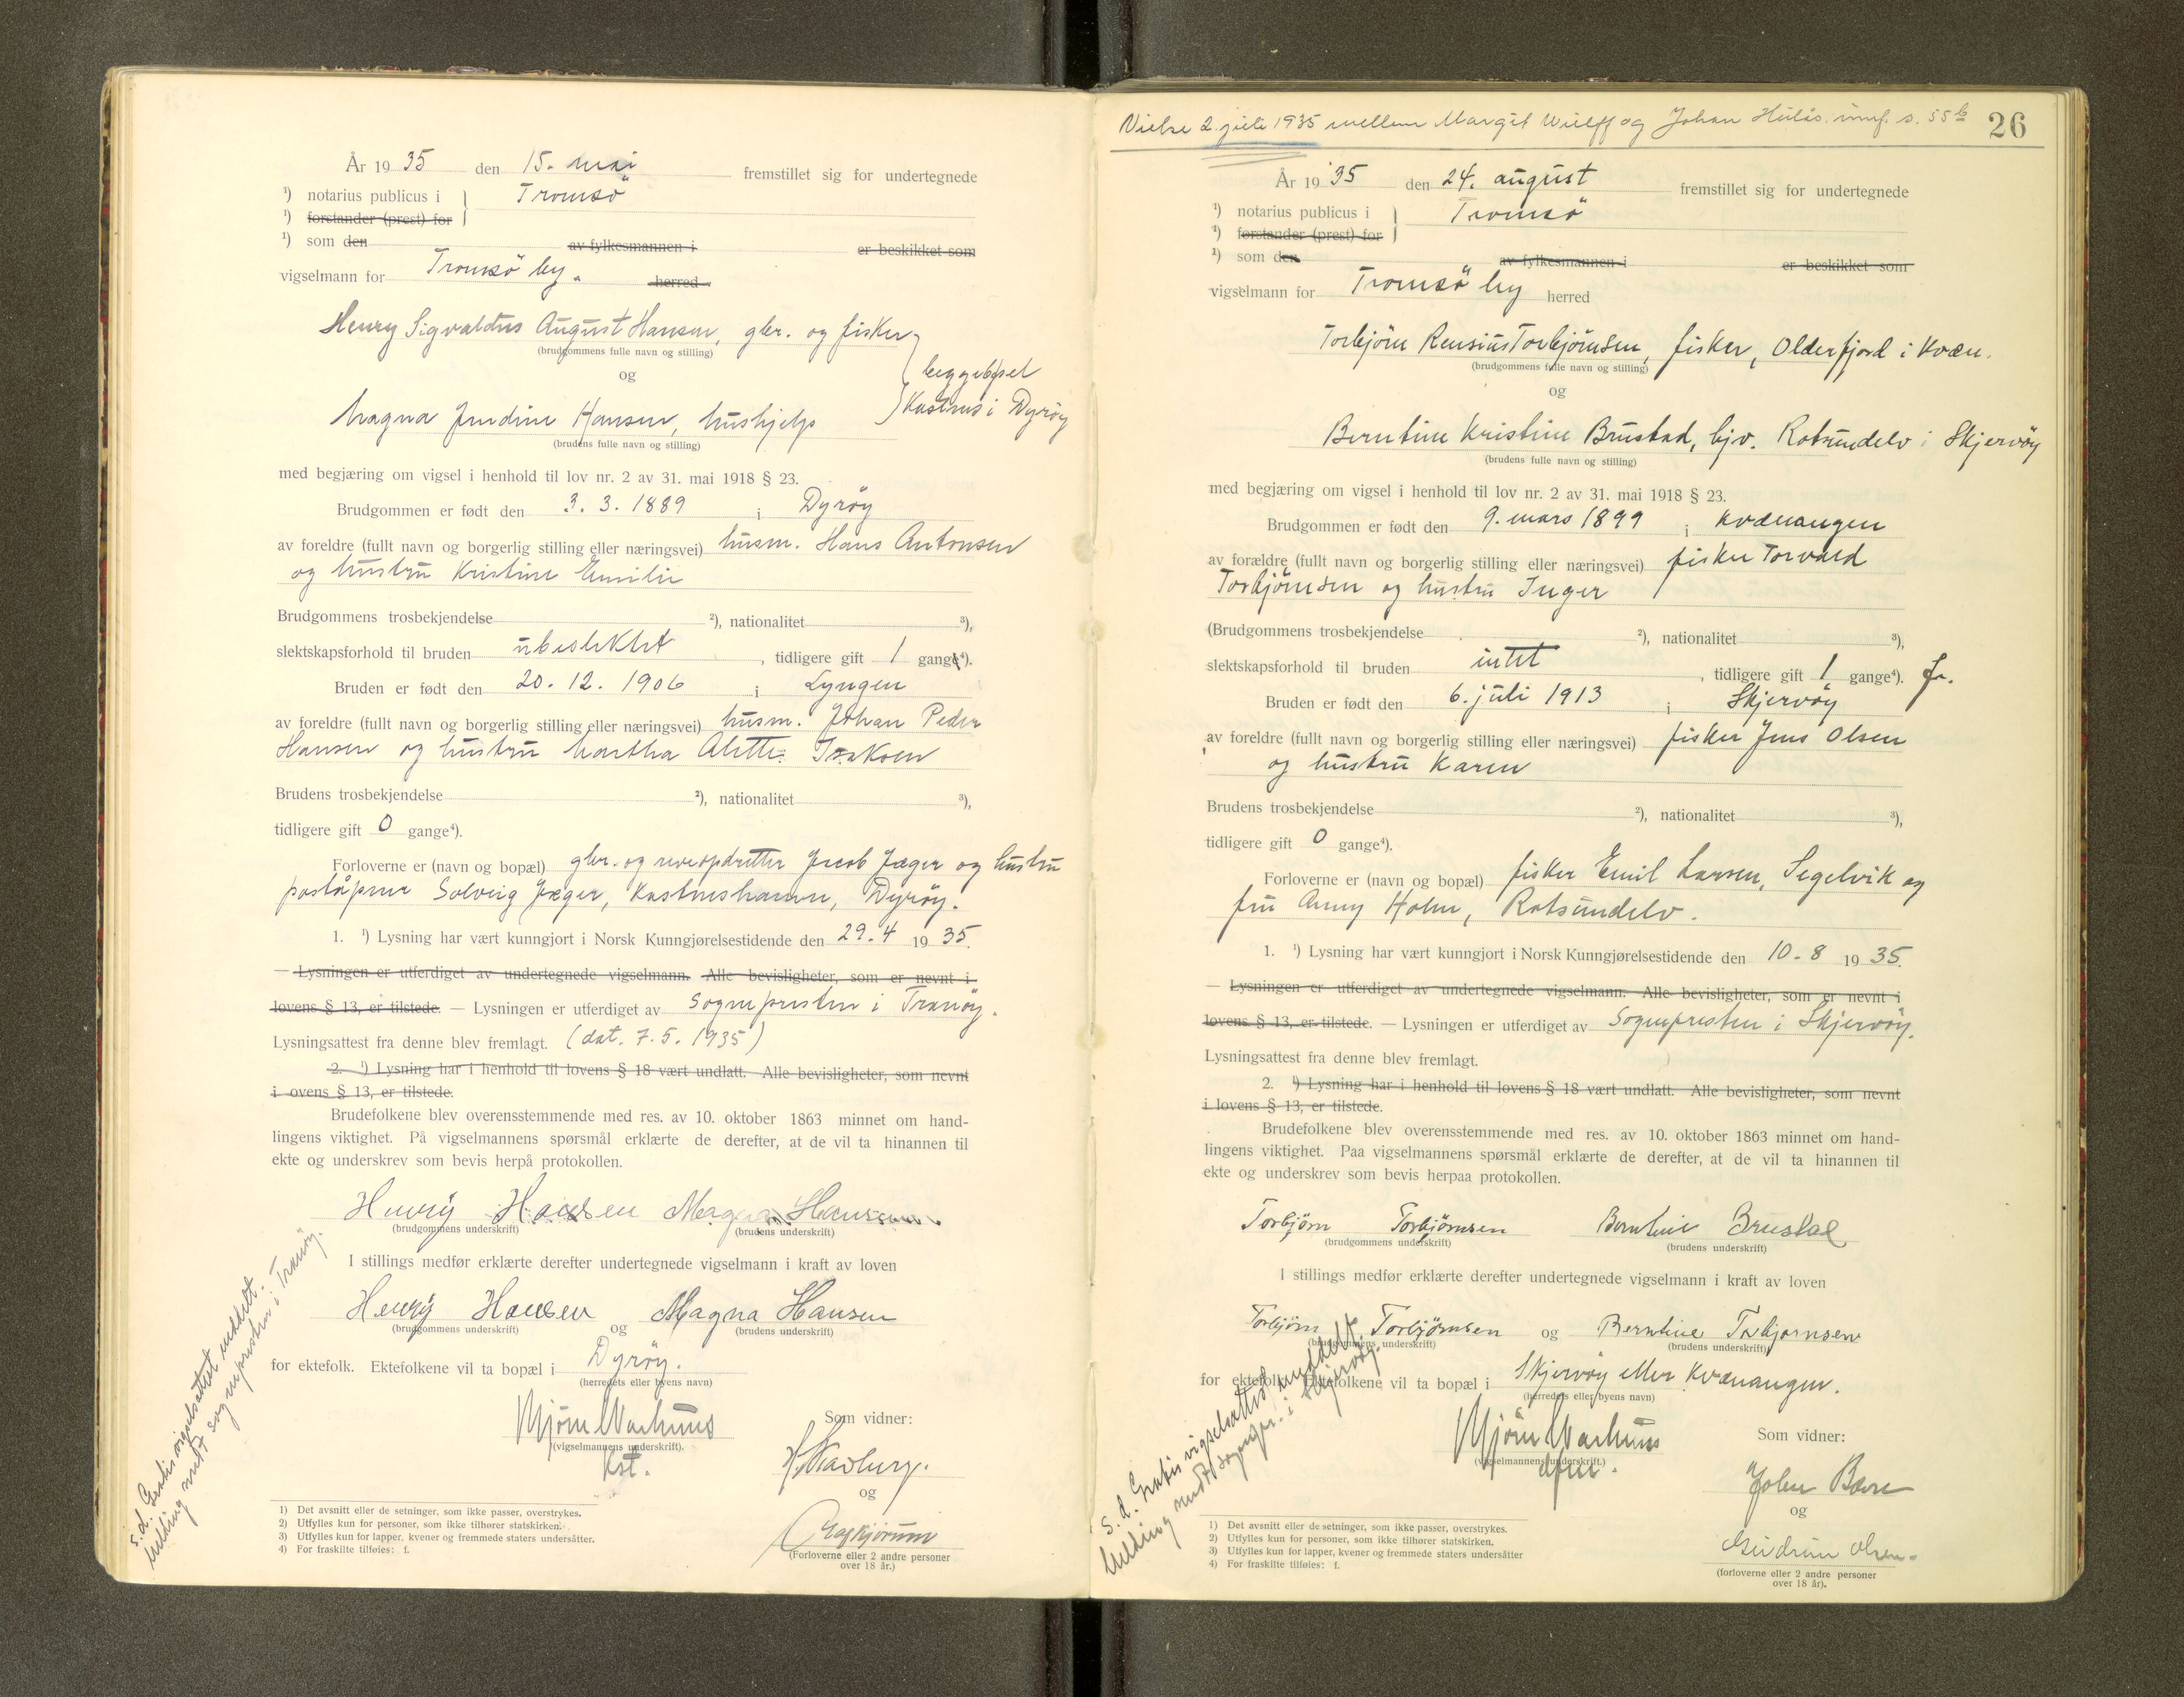 År 19 35 den 15. mai fremstillet sig for undertegnede
¹) notarius publicus i } Tromsö
¹) forstander (prest) for
¹) som den av fylkesmannen i er beskikket som
vigselmann for Tromsö by. herred
Henry Sigvaldus August Hansen, gbr. og fisker
(brudgommens fulle navn og stilling)
og
Magna Jendine Hansen, hushjelp
(brudens fulle navn og stilling)
Kastnes i Dyröy
med begjæring om vigsel i henhold til lov nr. 2 av 31. mai 1918 § 23.
Brudgommen er født den 3. 3. 1889 i Dyröy
av foreldre (fullt navn og borgerlig stilling eller næringsvei) husm. Hans Antonsen
og hustru Kristine Emilie
Brudgommens trosbekjendelse ²), nationalitet ³),
slektskapsforhold til bruden ubeslektet, tidligere gift 1 gange⁴).
Bruden er født den 20. 12. 1906 i Lyngen
av foreldre (fullt navn og borgerlig stilling eller næringsvei) husm. Johan Peder
Hansen og hustru Martha Alette Isaksen
Brudens trosbekjendelse ²), nationalitet ³),
tidligere gift 0 gange⁴).
Forloverne er (navn og bopæl) gbr. og reveopdretter Jacob Jæger og hustru
poståpner Solveig Jæger, Kastneshamn, Dyröy.
1. ¹) Lysning har vært kunngjort i Norsk Kunngjørelsestidende den 29. 4 19 35.
— Lysningen er utferdiget av undertegnede vigselmann. Alle bevisligheter, som er nevnt i
lovens § 13, er tilstede. — Lysningen er utferdiget av Sognepresten i Tranöy.
Lysningsattest fra denne blev fremlagt. (dat. 7. 5. 1935)
2. ¹) Lysning har i henhold til lovens § 18 vært undlatt. Alle bevisligheter, som nevnt
i ovens § 13, er tilstede.
Brudefolkene blev overensstemmende med res. av 10. oktober 1863 minnet om hand-
lingens viktighet. På vigselmannens spørsmål erklærte de derefter, at de vil ta hinannen til
ekte og underskrev som bevis herpå protokollen.
Henry Hansen Magna Hansen
(brudgommens underskrift) (brudens underskrift)
I stillings medfør erklærte derefter undertegnede vigselmann i kraft av loven
Henry Hansen og Magna Hansen
(brudgommens underskrift) (brudens underskrift)
for ektefolk. Ektefolkene vil ta bopæl i Dyröy.
(herredets eller byens navn)
Som vidner:
(vigselmannens underskrift).
kst.
og
(Forloverne eller 2 andre personer
over 18 år.)
s.d. Gratis vigselsattest meddelt.
Melding sendt sognepresten i Tranöy.
1) Det avsnitt eller de setninger, som ikke passer, overstrykes.
2) Utfylles kun for personer, som ikke tilhører statskirken.
3) Utfylles kun for lapper, kvener og fremmede staters undersåtter.
4) For fraskilte tilføies: f.
Vielse 2. juli 1935 mellem Margit Wulff og Johan s. 55 b 26
År 19 35 den 24. august fremstillet sig for undertegnede
¹) notarius publicus i } Tromsö
¹) forstander (prest) for
¹) som den av fylkesmannen i er beskikket som
vigselmann for Tromsö by herred
Torbjörn Rensius Torbjörnsen, fisker, Olderfjord i Kvæn.
(brudgommens fulle navn og stilling)
og
Berntine Kristine Brustad, hjv. Rotsundelv i Skjervöy
(brudens fulle navn og stilling)
med begjæring om vigsel i henhold til lov nr. 2 av 31. mai 1918 § 23.
Brudgommen er født den 9. mars 1899 i Kvænangen
av forældre (fullt navn og borgerlig stilling eller næringsvei) fisker Torvald
Torbjörnsen og hustru Inger
(Brudgommens trosbekjendelse ²), nationalitet ³),
slektskapsforhold til bruden intet, tidligere gift 1 gange⁴). fr.
Bruden er født den 6. juli 1913 i Skjervöy
av foreldre (fullt navn og borgerlig stilling eller næringsvei) fisker Jens Olsen
og hustru Karen
Brudens trosbekjendelse ²), nationalitet ³),
tidligere gift 0 gange⁴).
Forloverne er (navn og bopæl) fisker Emil Larsen, Segelvik og
fru Anny Holm, Rotsundelv.
1. ¹) Lysning har vært kunngjort i Norsk Kunngjørelsestidende den 10. 8 19 35.
— Lysningen er utferdiget av undertegnede vigselmann. Alle bevisligheter, som er nevnt i
lovens § 13, er tilstede. — Lysningen er utferdiget av Sognepresten i Skjervöy.
Lysningsattest fra denne blev fremlagt.
2. ¹) Lysning har i henhold til lovens § 18 vært undlatt. Alle bevisligheter, som nevnt
i lovens § 13, er tilstede.
Brudefolkene blev overensstemmende med res. av 10. oktober 1863 minnet om hand-
lingens viktighet. Paa vigselmannens spørsmål erklærte de derefter, at de vil ta hinannen til
ekte og underskrev som bevis herpaa protokollen.
Torbjörn Torbjörnsen Berntine Brustad
(brudgommens underskrift) (brudens underskrift)
I stillings medfør erklærte derefter undertegnede vigselmann i kraft av loven
Torbjörn Torbjörnsen og Berntine Torbjørnsen
(brudgommens underskrift) (brudens underskrift)
for ektefolk. Ektefolkene vil ta bopæl i Skjervöy eller Kvænangen.
(herredets eller byens navn)
Som vidner:
(vigselmannens underskrift.)
og
Gudrun Olsen
(forloverne eller 2 andre personer
over 18 år).
s. d. Gratis vigselsattest meddelt.
Melding sendt sognepr. i Skjervöy.
1) Det avsnitt eller de setninger, som ikke passer, overstrykes.
2) Utfylles kun for personer, som ikke tilhører statskirken.
3) Utfylles kun for lapper, kvener og fremmede staters undersåtter
4) For fraskilte tilføies: f.